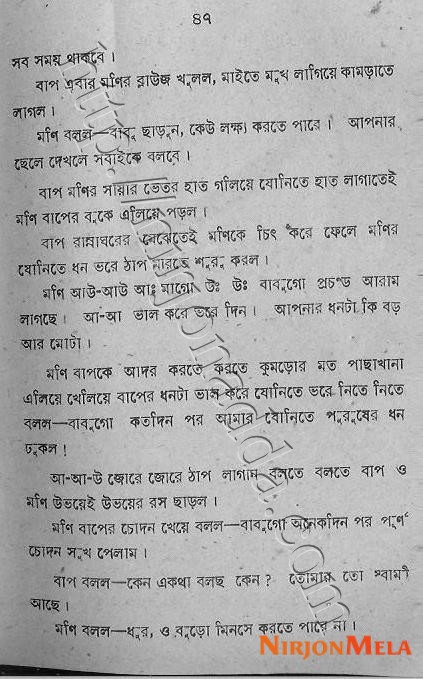 ৪৭
সব সময় থাকবে।
বাপ এবার মণির ব্লাউজ খুলল, মাইতে মুখ লাগিয়ে কামড়াতে
লাগল।
মণি বলল—বাবু ছাড়ুন, কেউ লক্ষ্য করতে পারে। আপনার
ছেলে দেখলে সবাইকে বলবে।
বাপ মণির সায়ার ভেতর হাত গলিয়ে যোনিতে হাত লাগাতেই
মণি বাপের বুকে এলিয়ে পড়ল।
বাপ রান্নাঘরের মেঝেতেই মণিকে চিৎ করে ফেলে মণির
যোনিতে ধন ভরে ঠাপ মারতে শুরু করল।
মণি আউ-আউ আঃ মাগো উঃ উঃ বাবুগো প্রচন্ড আরাম
লাগছে। আ-আ ভাল করে ভরে দিন। আপনার ধনটা কি বড়
আর মোটা।
মণি বাপকে আদর করতে করতে কুমড়োর মত পাছাখানা
এলিয়ে খেলিয়ে বাপের ধনটা ভাল করে যোনিতে ভরে নিতে নিতে
বলল—বাবুগো কতদিন পর আমার যোনিতে পুরুষের ধন
ঢুকল!
আ-আ-উ জোরে জোরে ঠাপ লাগান বলতে বলতে বাপ ও
মণি উভয়েই উভয়ের রস ছাড়ল।
মণি বাপের চোদন খেয়ে বলল—বাবুগো অনেকদিন পর পূর্ণ
চোদন সুখ পেলাম।
বাপ বলল—কেন একথা বলছ কেন? তোমার তো স্বামী
আছে।
মণি বলল—ধুর, ও বুড়ো মিনসে করতে পারে না।
NIRJONMELA